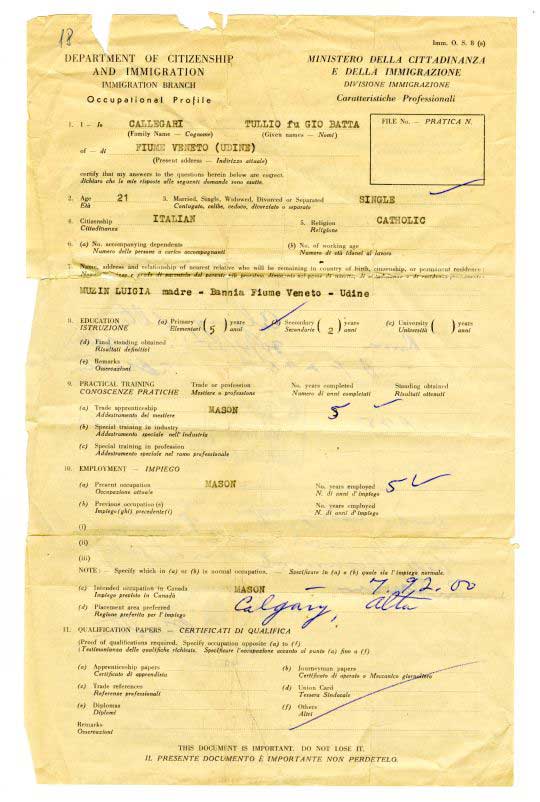 18
Imm. O. S. 8 (a)
DEPARTMENT OF CITIZENSHIP
AND IMMIGRATION
IMMIGRATION BRANCH
Occupational Profile
MINISTERO DELLA CITTADINANZA
E DELLA IMMIGRAZIONE
DIVISIONE IMMIGRAZIONE
Caratteristiche Professionali
1. I - Io CALLEGARI TULLIO fu GIO BATTA
(Family Name — Cognome) (Given names — Nomi)
FILE No. - PRATICA N.
of - di FIUME VENETO (UDINE)
(Present address — Indirizzo attuale)
certify that my answers to the questions herein below are correct.
dichiaro che le mie risposte alle seguenti domande sono esatte.
2. Age 21 3. Married, Single, Widowed, Divorced or Separated SINGLE
Età Coniugato, celibe, vedovo, divorziato o separato
4. Citizenship ITALIAN 5. Religion CATHOLIC
Cittadinanza Religione
6. (a) No. accompanying dependents (b) No. of working age
Numero delle persone a carico accompagnanti Numero di età idonei al lavoro
7. Name, address and relationship of nearest relative who will be remaining in country of birth, citizenship, or permanent residence:
MUZIN LUIGIA madre - Bannia Fiume Veneto - Udine
8. EDUCATION (a) Primary (5) years (b) Secondary (2) years (c) University ( ) years
ISTRUZIONE Elementari anni Secondarie anni Università anni
(d) Final standing obtained
Risultati definitivi
(e) Remarks
Osservazioni
9. PRACTICAL TRAINING Trade or profession No. years completed Standing obtained
CONOSCENZE PRATICHE Mestiere o professione Numero di anni completati Risultati ottenuti
(a) Trade apprenticeship MASON 5
Addestramento del mestiere
(b) Special training in industry
Addestramento speciale nell'industria
(c) Special training in profession
Addestramento speciale nel ramo professionale
10. EMPLOYMENT - IMPIEGO
(a) Present occupation MASON No. years employed 5
Occupazione attuale N. di anni d'impiego
(b) Previous occupation (s) No. years employed
Impiego (ghi) precedente (i) N. di anni d'impiego
(i)
(ii)
(iii)
NOTE: - Specify which in (a) or (b) is normal occupation. - Specificare in (a) o (b) quale sia l'impiego normale.
(c) Intended occupation in Canada MASON — 7.92.00
Impiego previsto in Canadà
(d) Placement area preferred Calgary, Alta
Regione preferita per l'impiego
11. QUALIFICATION PAPERS - CERTIFICATI DI QUALIFICA
(Proof of qualifications required. Specify occupation opposite (a) to (f)
(Testimonianza delle qualifiche richieste. Specificare l'occupazione accanto al punto (a) fino a (f)
(a) Apprenticeship papers (b) Journeyman papers
Certificato di apprendista Certificato di operaio o Meccanico giornaliero
(c) Trade references (d) Union Card
Referenze professionali Tessera Sindacale
(e) Diplomas (f) Others
Diplomi Altri
Remarks
Osservazioni
THIS DOCUMENT IS IMPORTANT. DO NOT LOSE IT.
IL PRESENTE DOCUMENTO È IMPORTANTE NON PERDETELO.